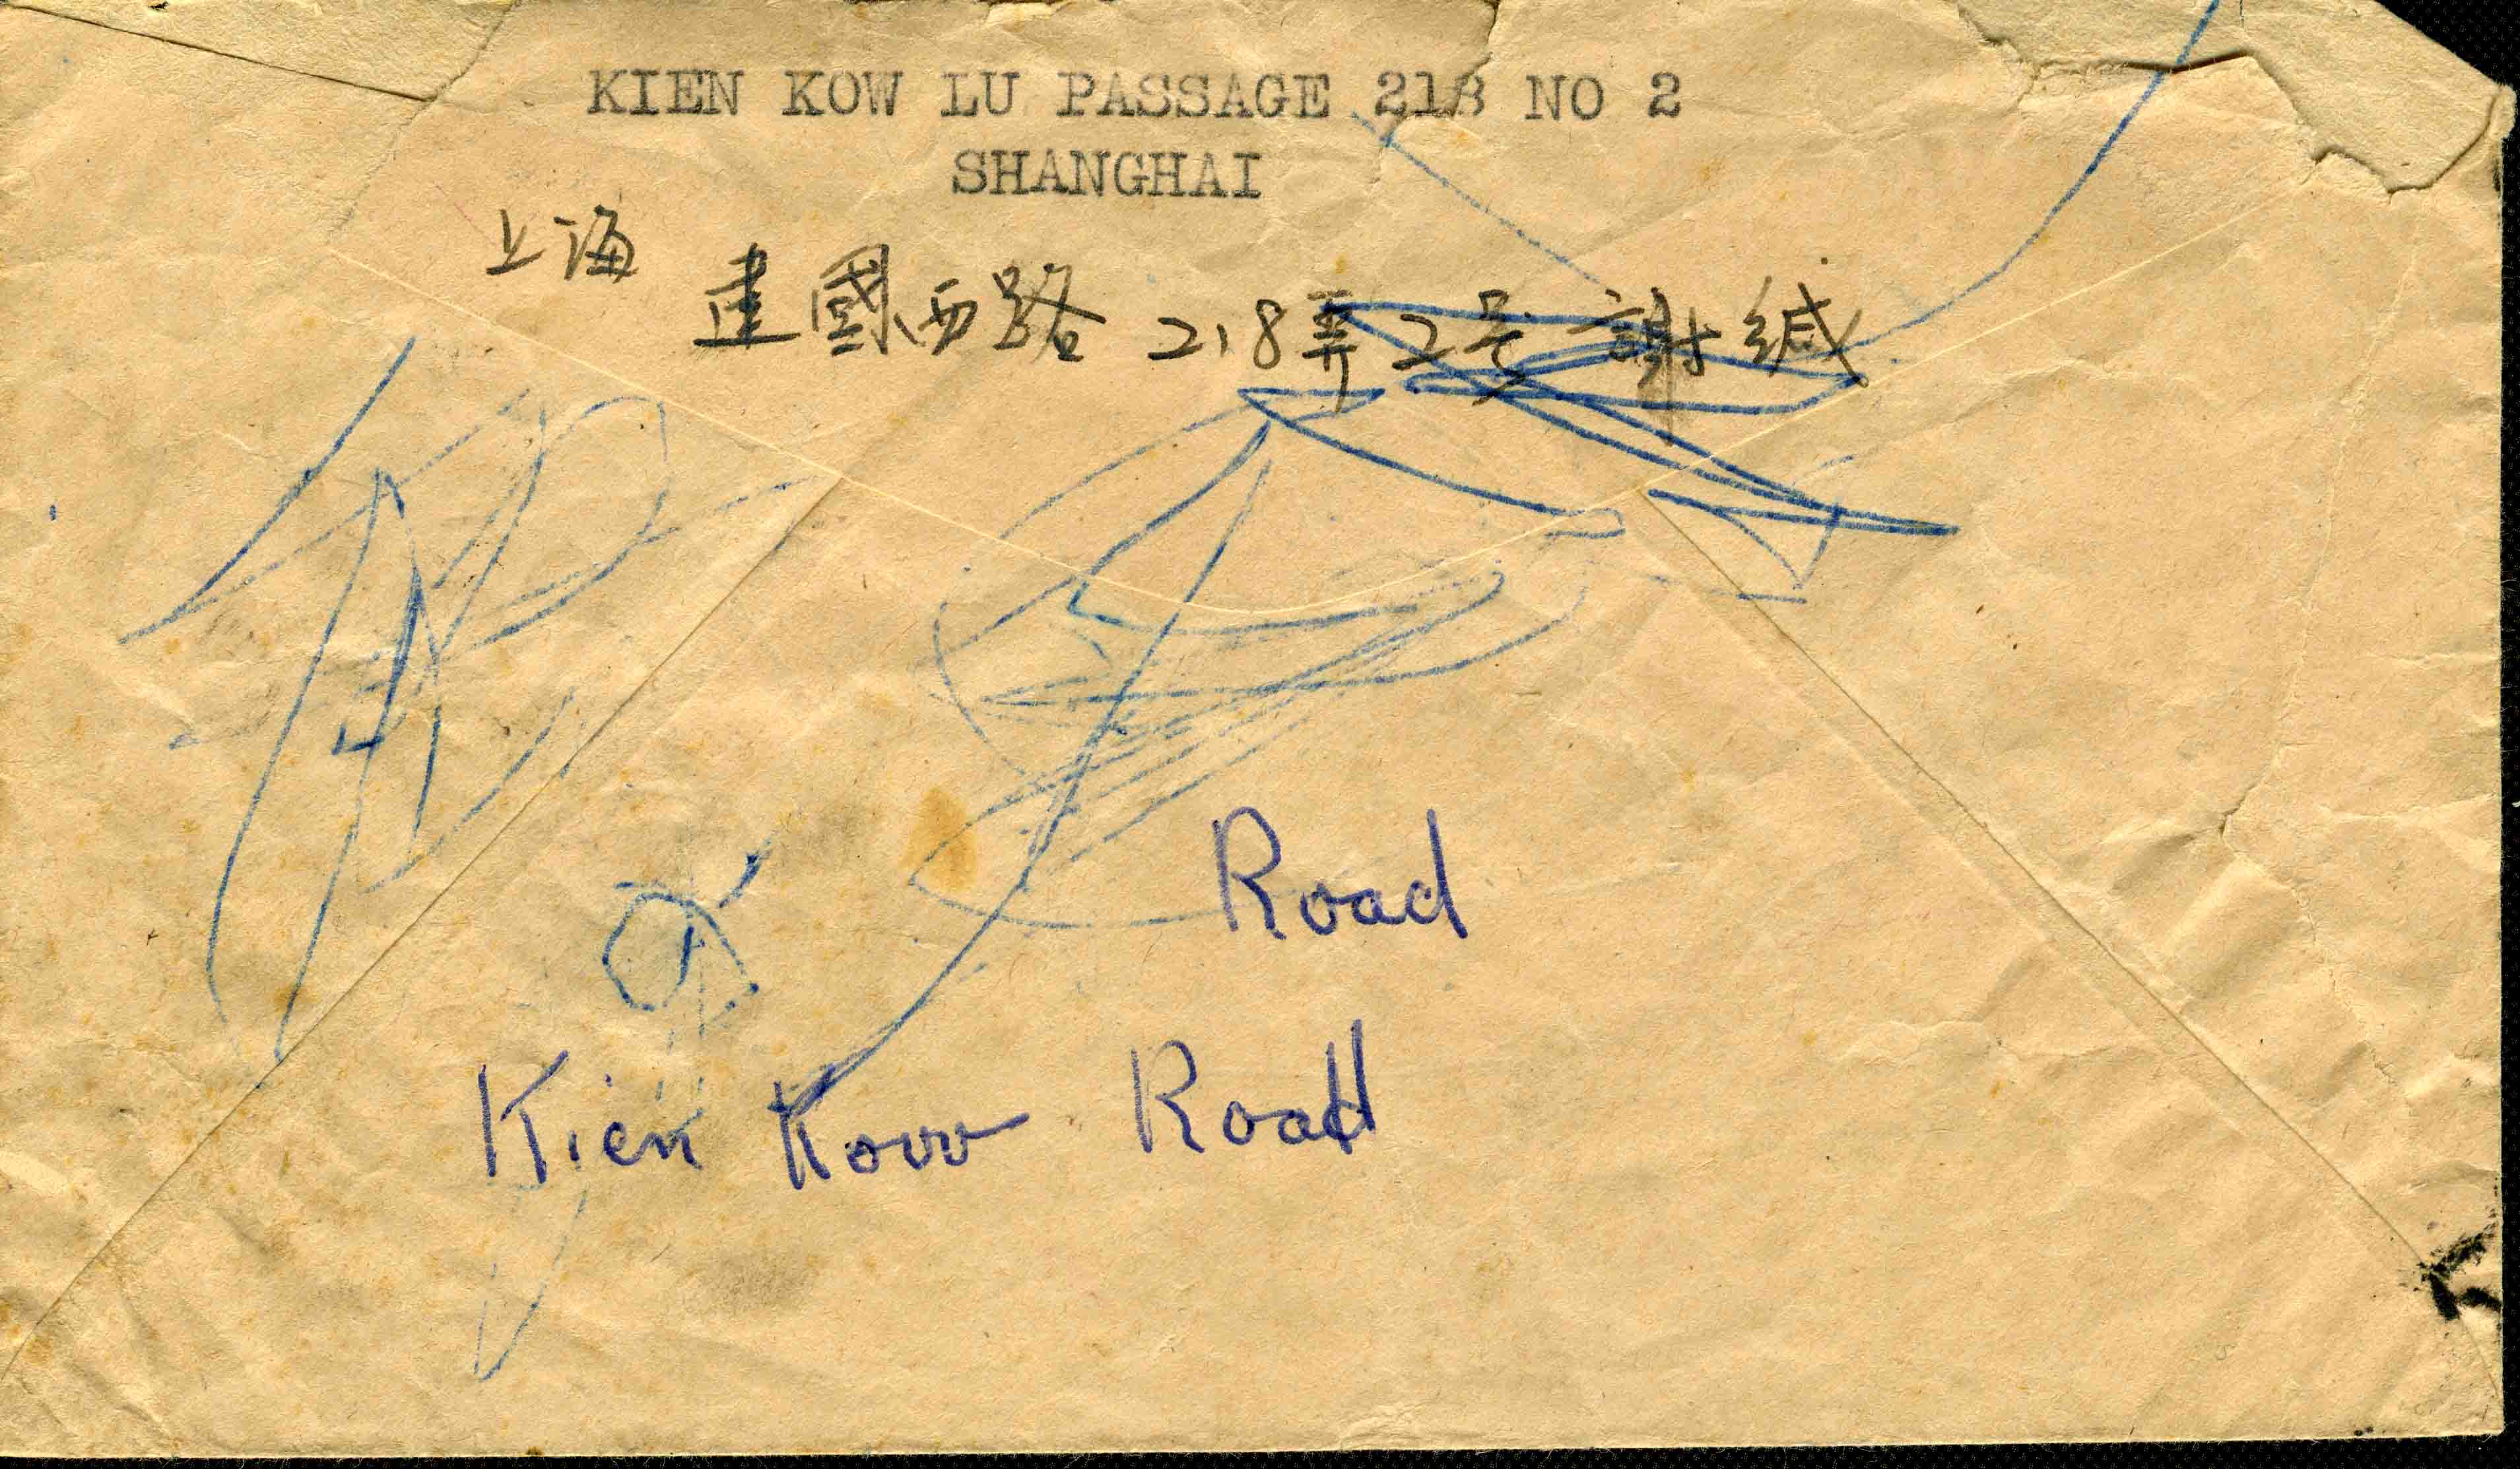 KIEN KOW LU PASSAGE 218 NO 2
SHANGHAI
上海
建國西路 218弄2号 謝缄
Road
Kien Kow Road